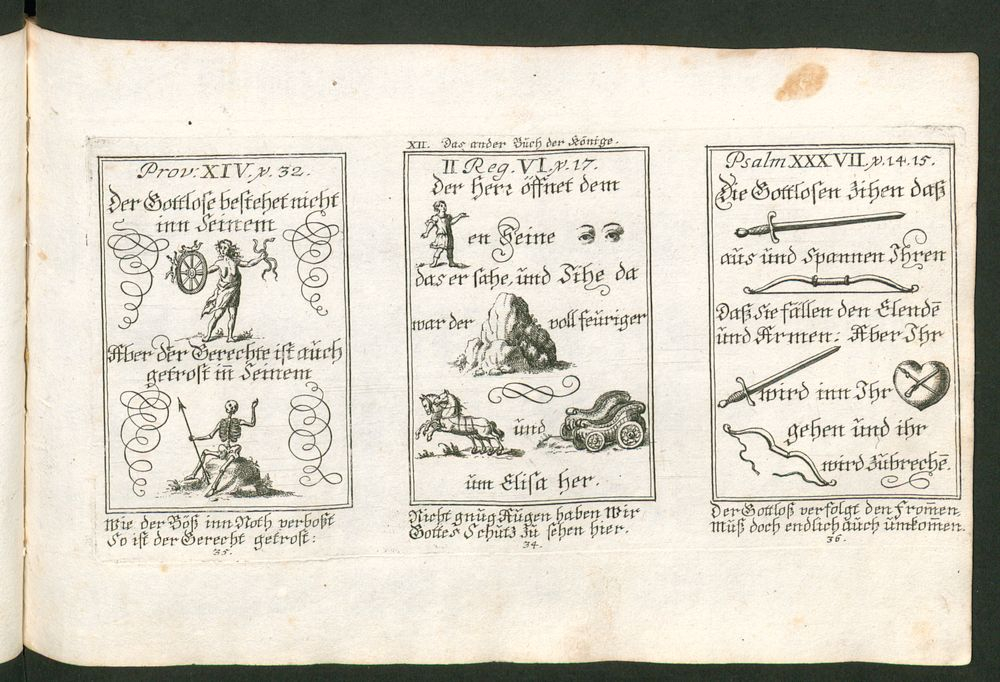 Prov. XIV. v. 32.
Der Gottlose bestehet nicht
inn Seinem
Aber der Gerechte ist auch
getrost in̄ Seinem
Wie der Böß inn Noth verboßt
So ist der Gerecht getrost:
35.
XII. Das ander Buch der Könige.
II Reg. VI. v. 17.
Der Herr öffnet dem
en Seine
das er sahe, und Sihe da
war der voll feuriger
und
um Elisa her.
Nicht gnug Augen haben Wir
Gottes Schutz zu sehen hier.
34.
Psalm XXXVII. v. 14. 15.
Die Gottlosen Zihen daß
aus und Spannen Ihren
Daß Sie fällen den Elendē
und Armen: Aber Ihr
wird inn Ihr
gehen und ihr
wird Zubrechē.
Der Gottloß verfolgt den From̄en
Muß doch endlich auch umkom̄en.
36.